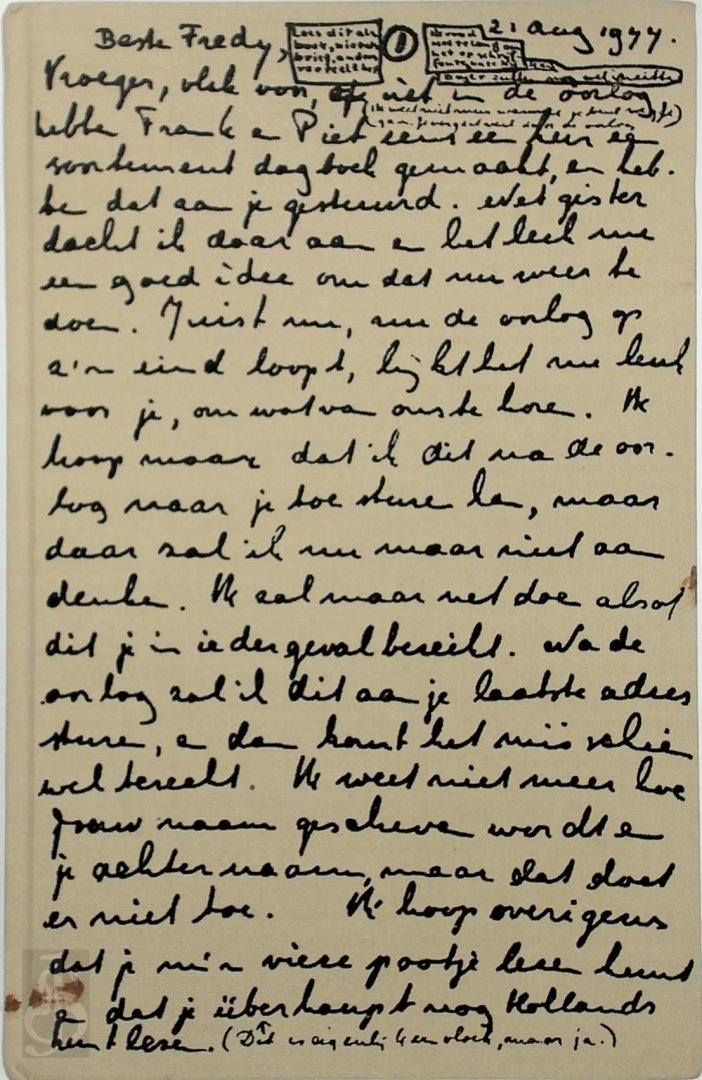 Beste Fredy, ① 21 aug 1944.
Lees dit als
boek, niet als
brief, anders
vertelt het
Vroeger, vlak voor, of net in de oorlog
(ik weet niet meer wanneer je bent weggegaan
hebben Frank en Piet eens een keer een
soortement dagboek gemaakt, en heb-
ben dat aan je gestuurd. Net gister
dacht ik daar aan en het leek me
een goed idee om dat nu weer te
doen. Juist nu, nu de oorlog op
z'n eind loopt, lijkt het me leuk
voor je, om wat van ons te horen. Ik
hoop maar dat ik dit na de oor-
log naar je toe sturen kan, maar
daar zal ik nu maar niet aan
denken. Ik zal maar net doen alsof
dit je in ieder geval bereikt. Na de
oorlog zal ik dit aan je laatste adres
sturen, en dan komt het misschien
wel terecht. Ik weet niet meer hoe
jouw naam geschreven wordt en
je achternaam, maar dat doet
er niet toe. Ik hoop overigens
dat je m'n vieze pootje lezen kunt
en dat je überhaupt nog Hollands
kunt lezen. (Dit is eigenlijk een vloek, maar ja.)